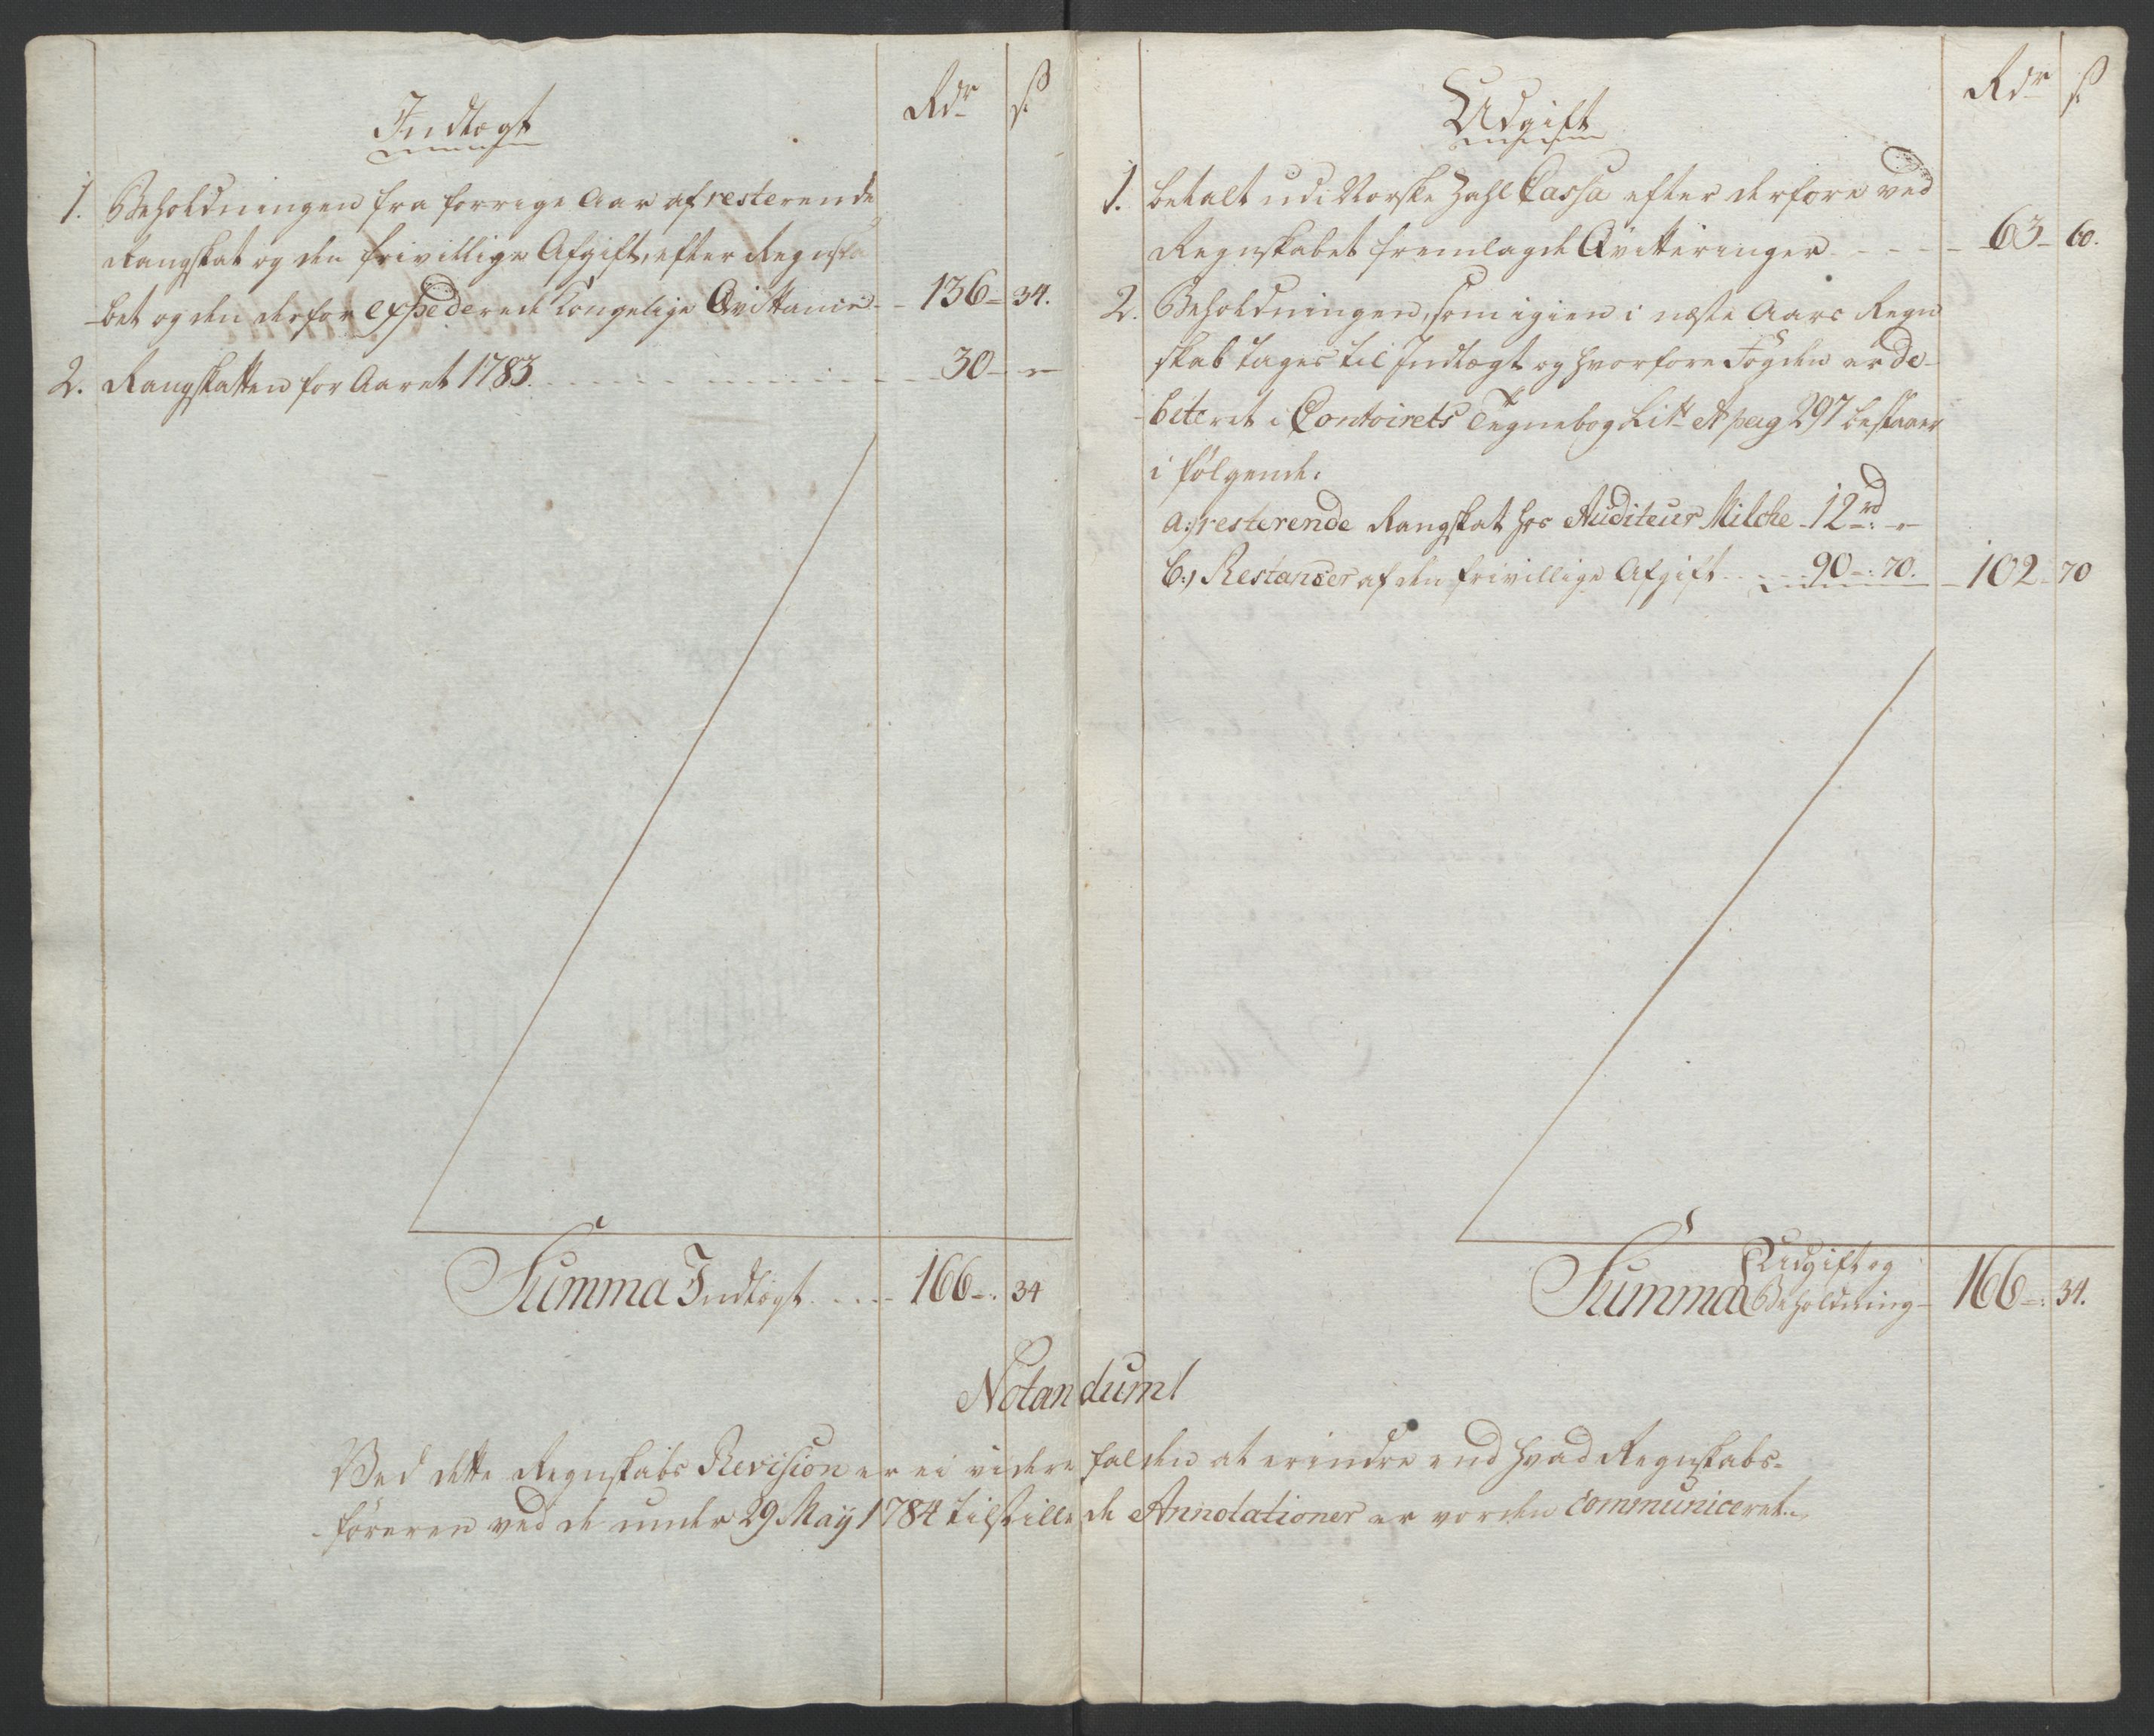 Rdr ß
Indtægt
1. Beholdningen fra forrige Aar af resterende
Rangskat og den frivillige Afgift, efter Regnska
bet og den derfor expederede Kongelige Qvittance - 136 - 34.
2. Rangskatten for Aaret 1783. - 30 - "
Summa Indtægt - 166 -: 34
Rdr ß
Udgift
1. betalt udi Norske Zahl Cassa efter derfore ved
Regnskabet fremlagde Qvitteringer - 63 - 60.
2. Beholdningen, som igien i næste Aars Regn
skab tages til Indtægt og hvorfore Fogden er de-
biteret i Contoirets Tegnebog Litr A pag 297 bestaaer
i følgende:
a:, resterende Rangskat hos Auditeur Milche - 12 rd: "
b:, Restancer af den frivillige Afgift - 90 -: 70. - 102 - 70
Summa Udgift og
Beholdning - 166 -: 34.
Notandum!
Ved dette Regnskabs Revision er ei videre falden at erindre end hvad Regnskabs-
føreren ved de under 29 Maij 1784 tilstillede Annotationer er vorden communiceret.